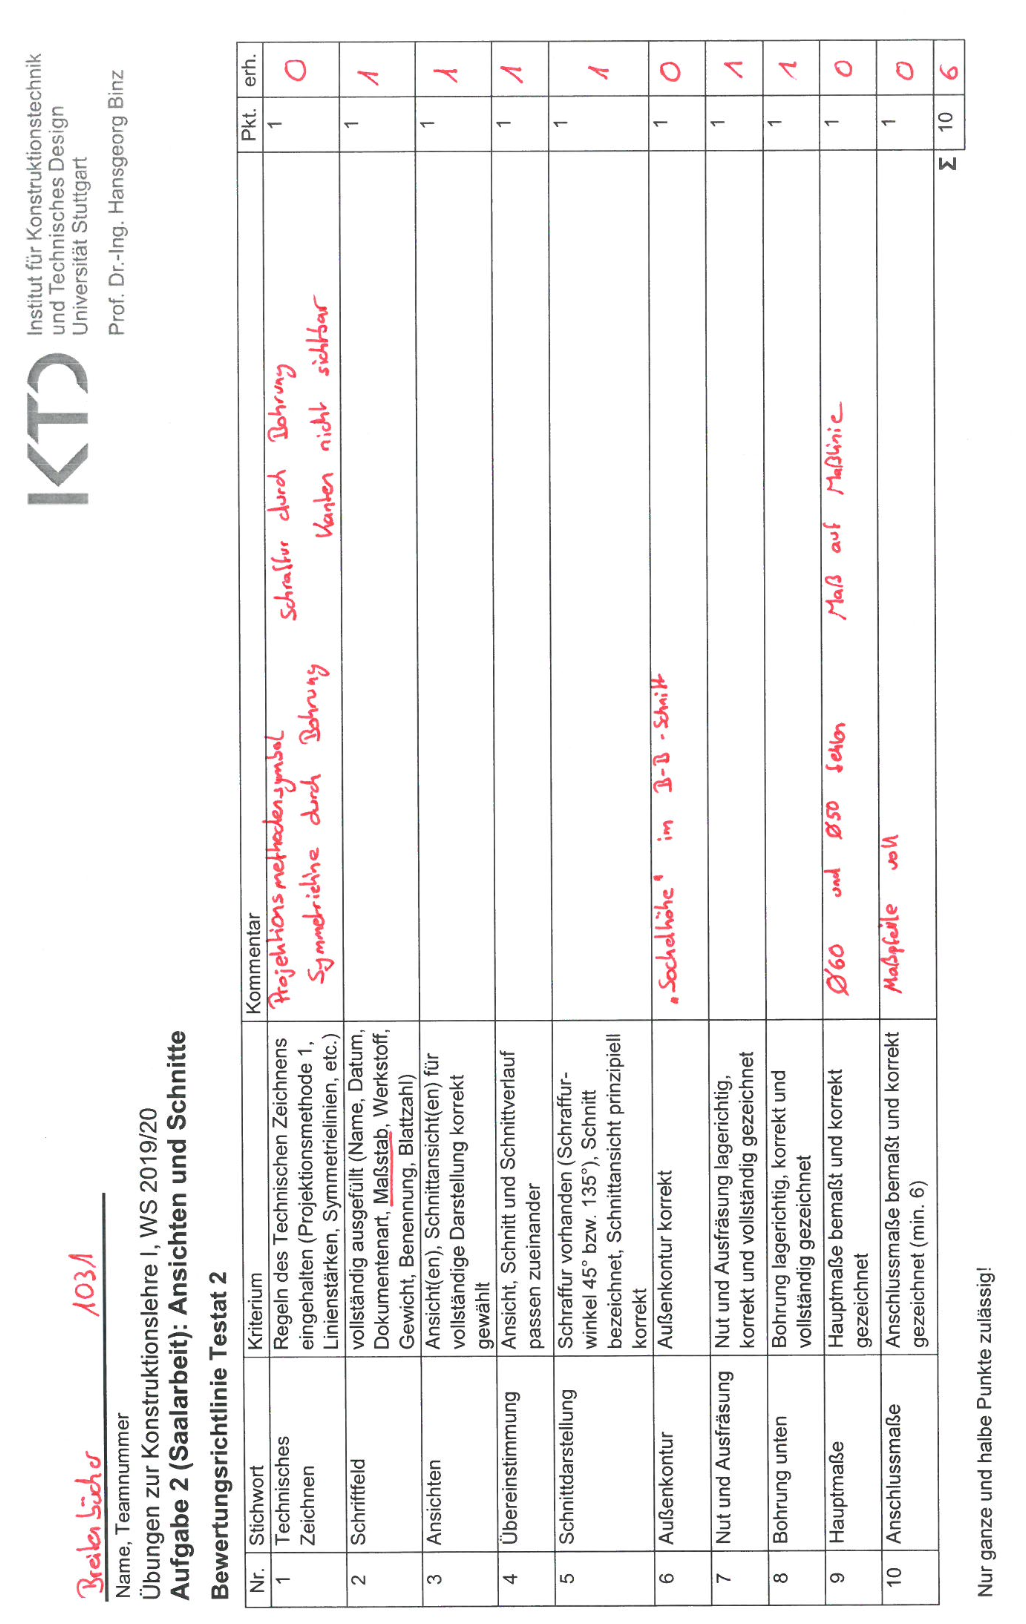 KTD
Institut für Konstruktionstechnik
und Technisches Design
Universität Stuttgart
Prof. Dr.-Ing. Hansgeorg Binz
Breitenbücher 1031
Name, Teamnummer
Übungen zur Konstruktionslehre I, WS 2019/20
Aufgabe 2 (Saalarbeit): Ansichten und Schnitte
Bewertungsrichtlinie Testat 2
Nr. Stichwort Kriterium Kommentar Pkt. erh.
1 Technisches Zeichnen
Regeln des Technischen Zeichnens
eingehalten (Projektionsmethode 1,
Linienstärken, Symmetrielinien, etc.)
Projektionsmethodensymbol
Symmetrieline durch Bohrung
Schraffur durch Bohrung
Kanten nicht sichtbar
1 0
2 Schriftfeld
vollständig ausgefüllt (Name, Datum,
Dokumentenart, Maßstab, Werkstoff,
Gewicht, Benennung, Blattzahl)
1 1
3 Ansichten
Ansicht(en), Schnittansicht(en) für
vollständige Darstellung korrekt
gewählt
1 1
4 Übereinstimmung
Ansicht, Schnitt und Schnittverlauf
passen zueinander
1 1
5 Schnittdarstellung
Schraffur vorhanden (Schraffur-
winkel 45° bzw. 135°), Schnitt
bezeichnet, Schnittansicht prinzipiell
korrekt
1 1
6 Außenkontur Außenkontur korrekt
„Sockelhöhe" im B-B-Schnitt
1 0
7 Nut und Ausfräsung
Nut und Ausfräsung lagerichtig,
korrekt und vollständig gezeichnet
1 1
8 Bohrung unten
Bohrung lagerichtig, korrekt und
vollständig gezeichnet
1 1
9 Hauptmaße
Hauptmaße bemaßt und korrekt
gezeichnet
Ø60 und Ø50 fehlen Maß auf Maßlinie
1 0
10 Anschlussmaße
Anschlussmaße bemaßt und korrekt
gezeichnet (min. 6)
Maßpfeile voll
1 0
Σ 10 6
Nur ganze und halbe Punkte zulässig!